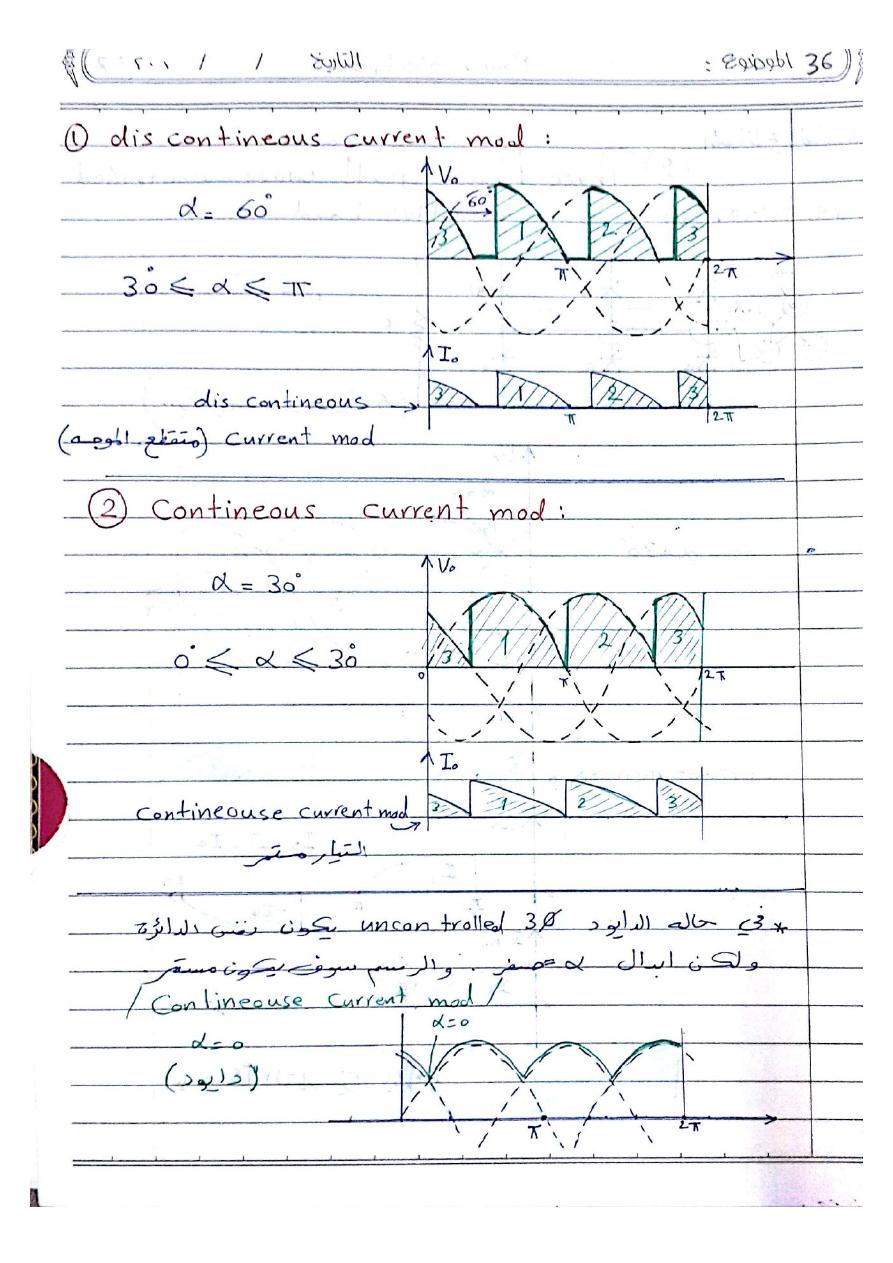 36 الموضوع : التاريخ / / ٢٠١
① dis contineous current mod :
α = 60°
30° ⩽ α ⩽ π
Vo
60°
3 1 2 3
π 2π
Io
3 1 2 3
π 2π
dis contineous
current mod (متقطع الموجه)
② Contineous current mod :
α = 30°
0° ⩽ α ⩽ 30°
Vo
3 1 2 3
0 π 2π
Io
3 1 2 3
Contineouse current mod
التيار مستمر
* في حاله الدايود uncontrolled 3Ø يكون نفس الدائرة
ولكن ابدال α = صفر . والرسم سوف يكون مستمر
/ Contineouse Current mod /
α=0
α=0
(دايود)
π 2π